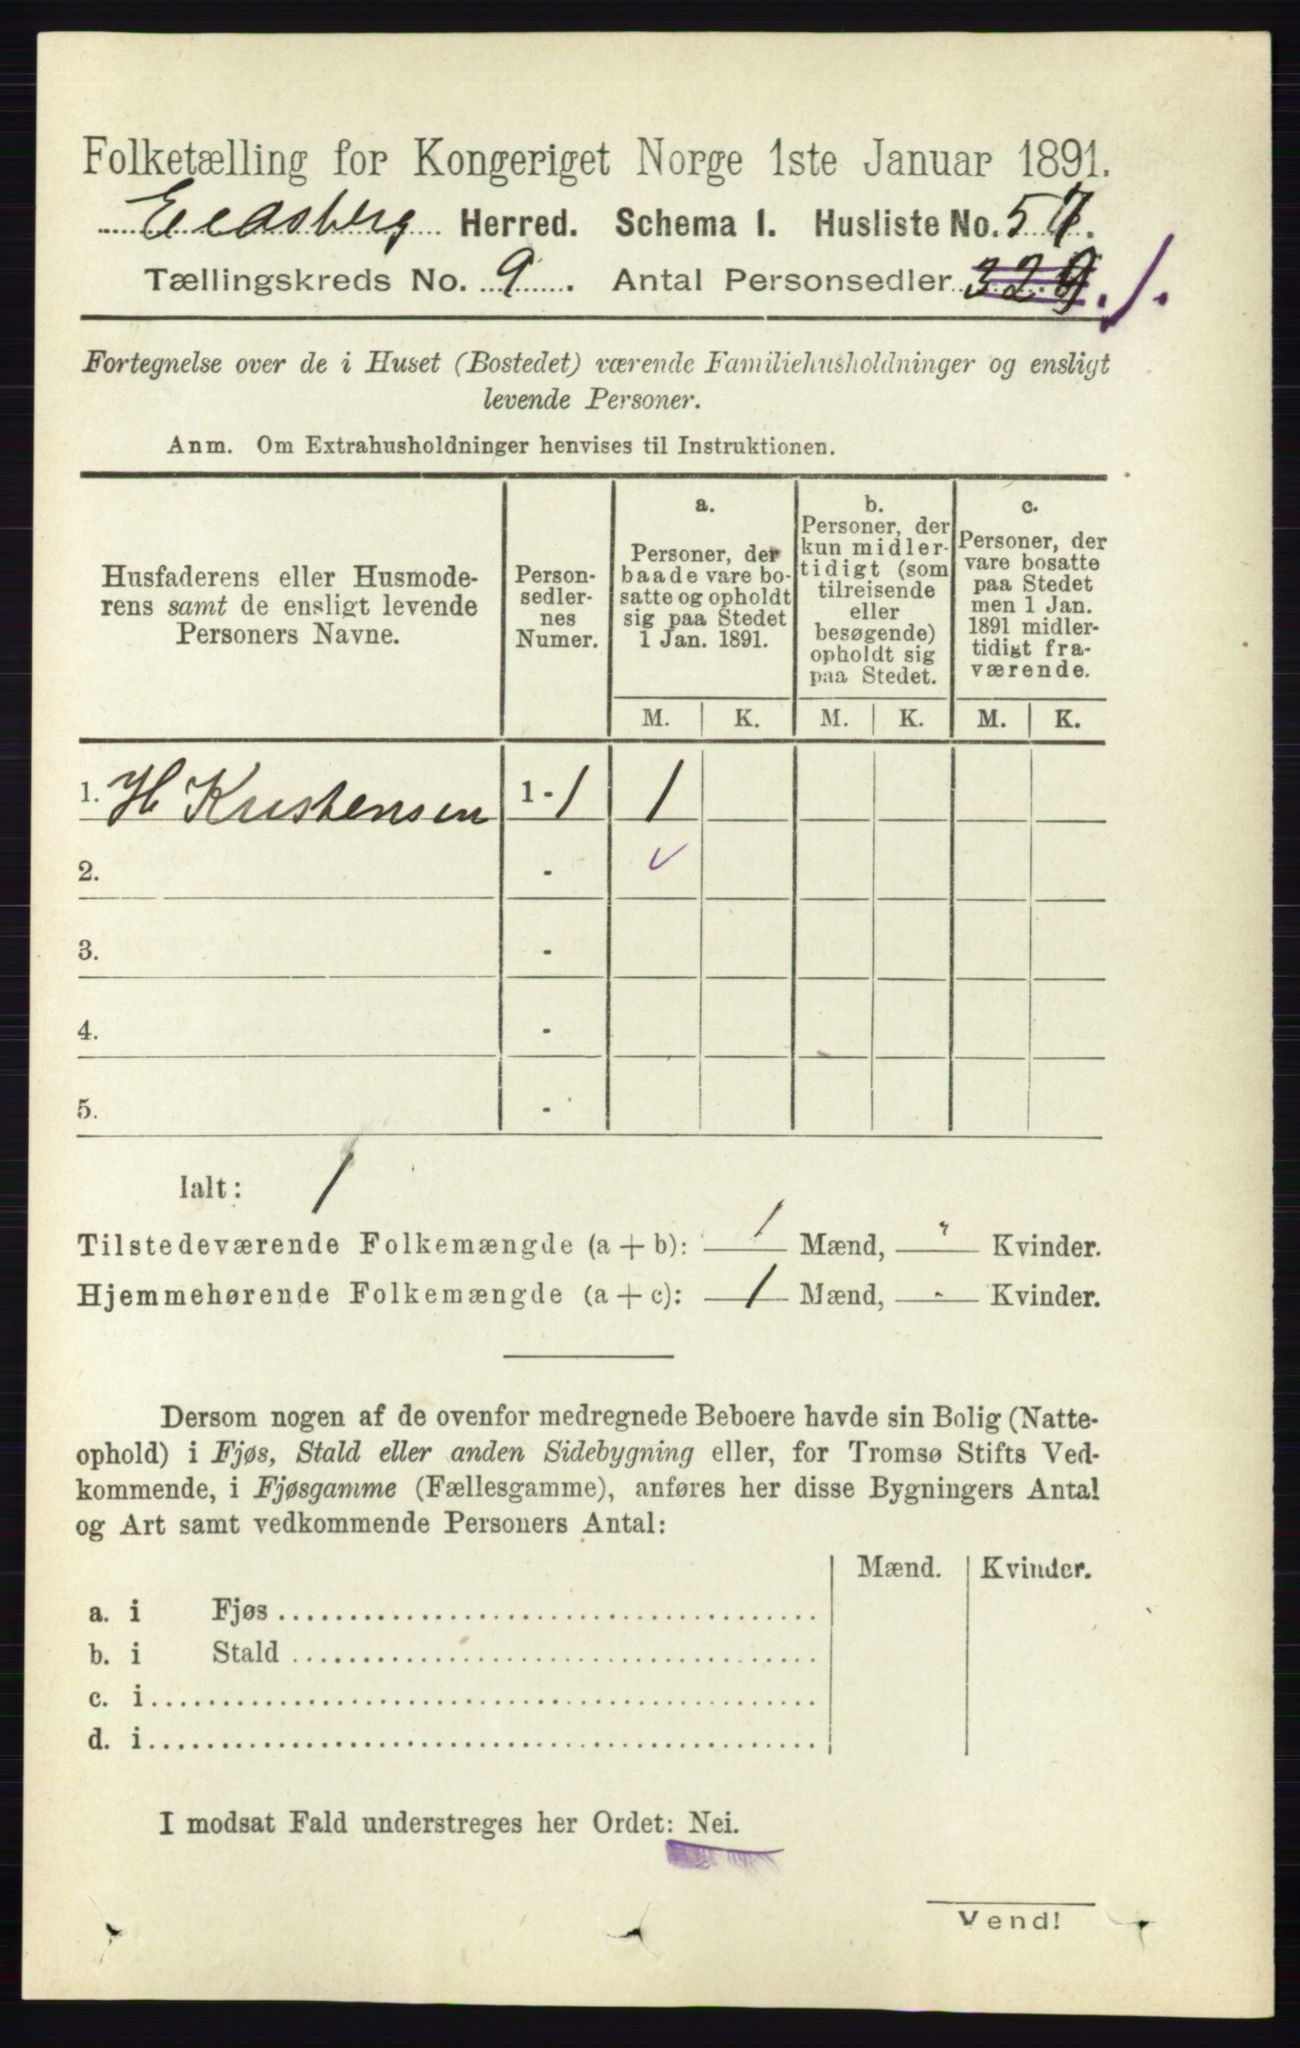 Folketælling for Kongeriget Norge 1ste Januar 1891.
Eidsberg Herred. Schema I. Husliste No. 57.
Tællingskreds No. 9. Antal Personsedler 329. 1.
Fortegnelse over de i Huset (Bostedet) værende Familiehusholdninger og ensligt
levende Personer.
Anm. Om Extrahusholdninger henvises til Instruktionen.
Husfaderens eller Husmode-
rens samt de ensligt levende
Personers Navne.
Person-
sedler-
nes
Numer.
a.
Personer, der
baade vare bo-
satte og opholdt
sig paa Stedet
1 Jan. 1891.
b.
Personer, der
kun midler-
tidigt (som
tilreisende
eller
besøgende)
opholdt sig
paa Stedet.
c.
Personer, der
vare bosatte
paa Stedet
men 1 Jan.
1891 midler-
tidigt fra-
værende.
M. K. M. K. M. K.
1. H Kristensen 1 - 1 1
2. -
3. -
4. -
5. -
Ialt: 1
Tilstedeværende Folkemængde (a + b): 1 Mænd, " Kvinder.
Hjemmehørende Folkemængde (a + c): 1 Mænd, - Kvinder.
Dersom nogen af de ovenfor medregnede Beboere havde sin Bolig (Natte-
ophold) i Fjøs, Stald eller anden Sidebygning eller, for Tromsø Stifts Ved-
kommende, i Fjøsgamme (Fællesgamme), anføres her disse Bygningers Antal
og Art samt vedkommende Personers Antal:
Mænd. Kvinder.
a. i Fjøs
b. i Stald
c. i
d. i
I modsat Fald understreges her Ordet: Nei.
Vend!